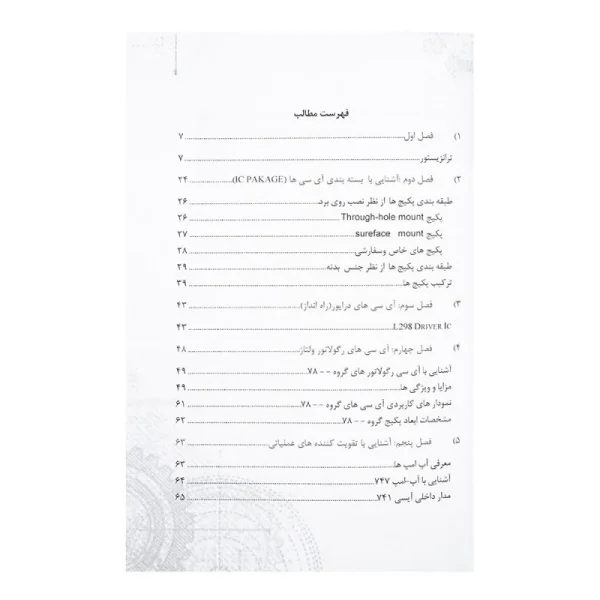 فهرست مطالب
۱) فصل اول ۷
ترانزیستور ۷
۲) فصل دوم :آشنایی با بسته بندی آی سی ها (IC PAKAGE) ۲۴
طبقه بندی پکیج ها از نظر نصب روی برد ۲۶
پکیج Through-hole mount ۲۶
پکیج sureface mount ۲۷
پکیج های خاص وسفارشی ۲۸
طبقه بندی پکیج ها از نظر جنس بدنه ۲۹
ترکیب پکیج ها ۳۹
۳) فصل سوم: آی سی های درایور(راه انداز) ۴۳
L298 DRIVER IC ۴۳
۴) فصل چهارم: آی سی های رگولاتور ولتاژ ۴۸
آشنایی با آی سی رگولاتور های گروه - - ۷۸ ۴۹
مزایا و ویژگی ها ۴۹
نمودار های کاربردی آی سی های گروه - - ۷۸ ۶۱
مشخصات ابعاد پکیج گروه - - ۷۸ ۶۲
۵) فصل پنجم: آشنایی با تقویت کننده های عملیاتی ۶۳
معرفی آپ امپ ها ۶۳
آشنایی با آپ-امپ ۷۴۷ ۶۴
مدار داخلی آیسی ۷۴۱ ۶۵